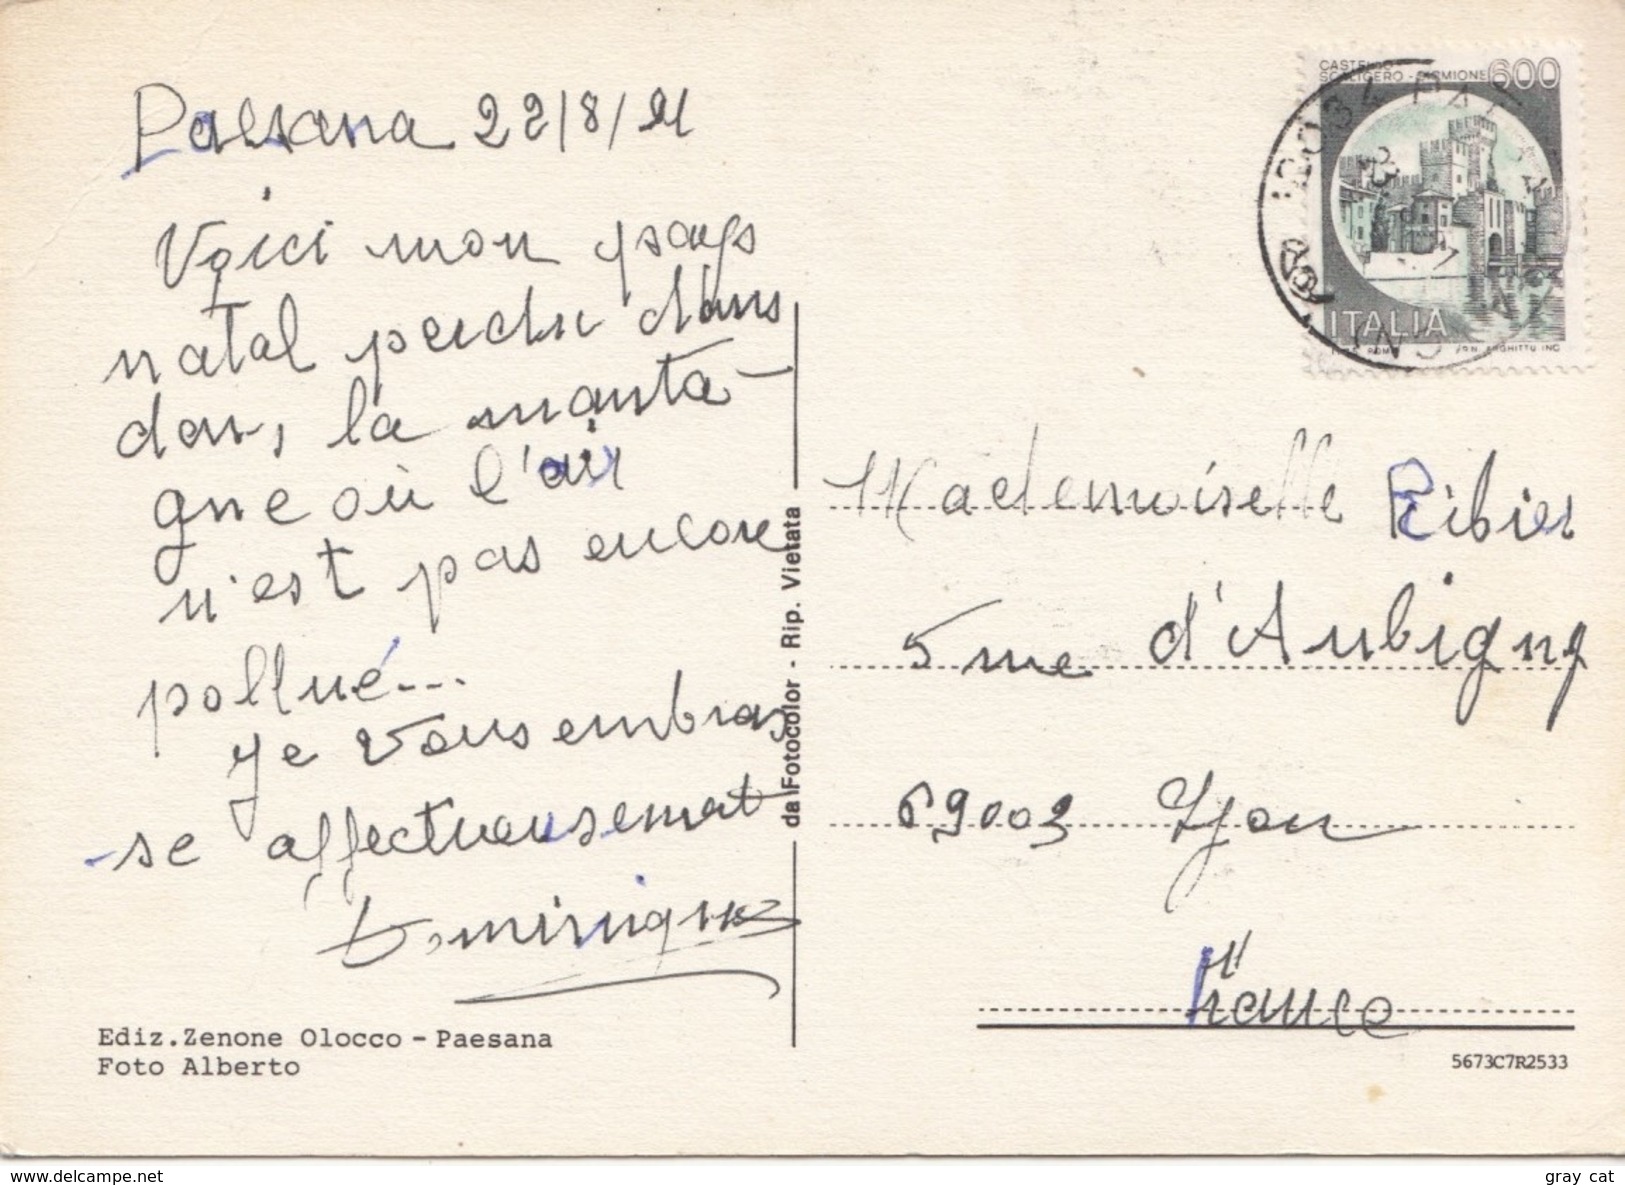 Paesana 22/8/91
Voici mon pays
natal perdu dans
dans, la monta-
gne où l'air
n'est pas encore
pollué...
Je vous embras
-se affectueusement
Dominique
Ediz.Zenone Olocco - Paesana
Foto Alberto
da Fotocolor - Rip. Vietata
CASTELLO
SCALIGERO - SIRMIONE 600
ITALIA
Mademoiselle Ribier
5 rue d'Aubigny
69003 Lyon
France
5673C7R2533
gray cat